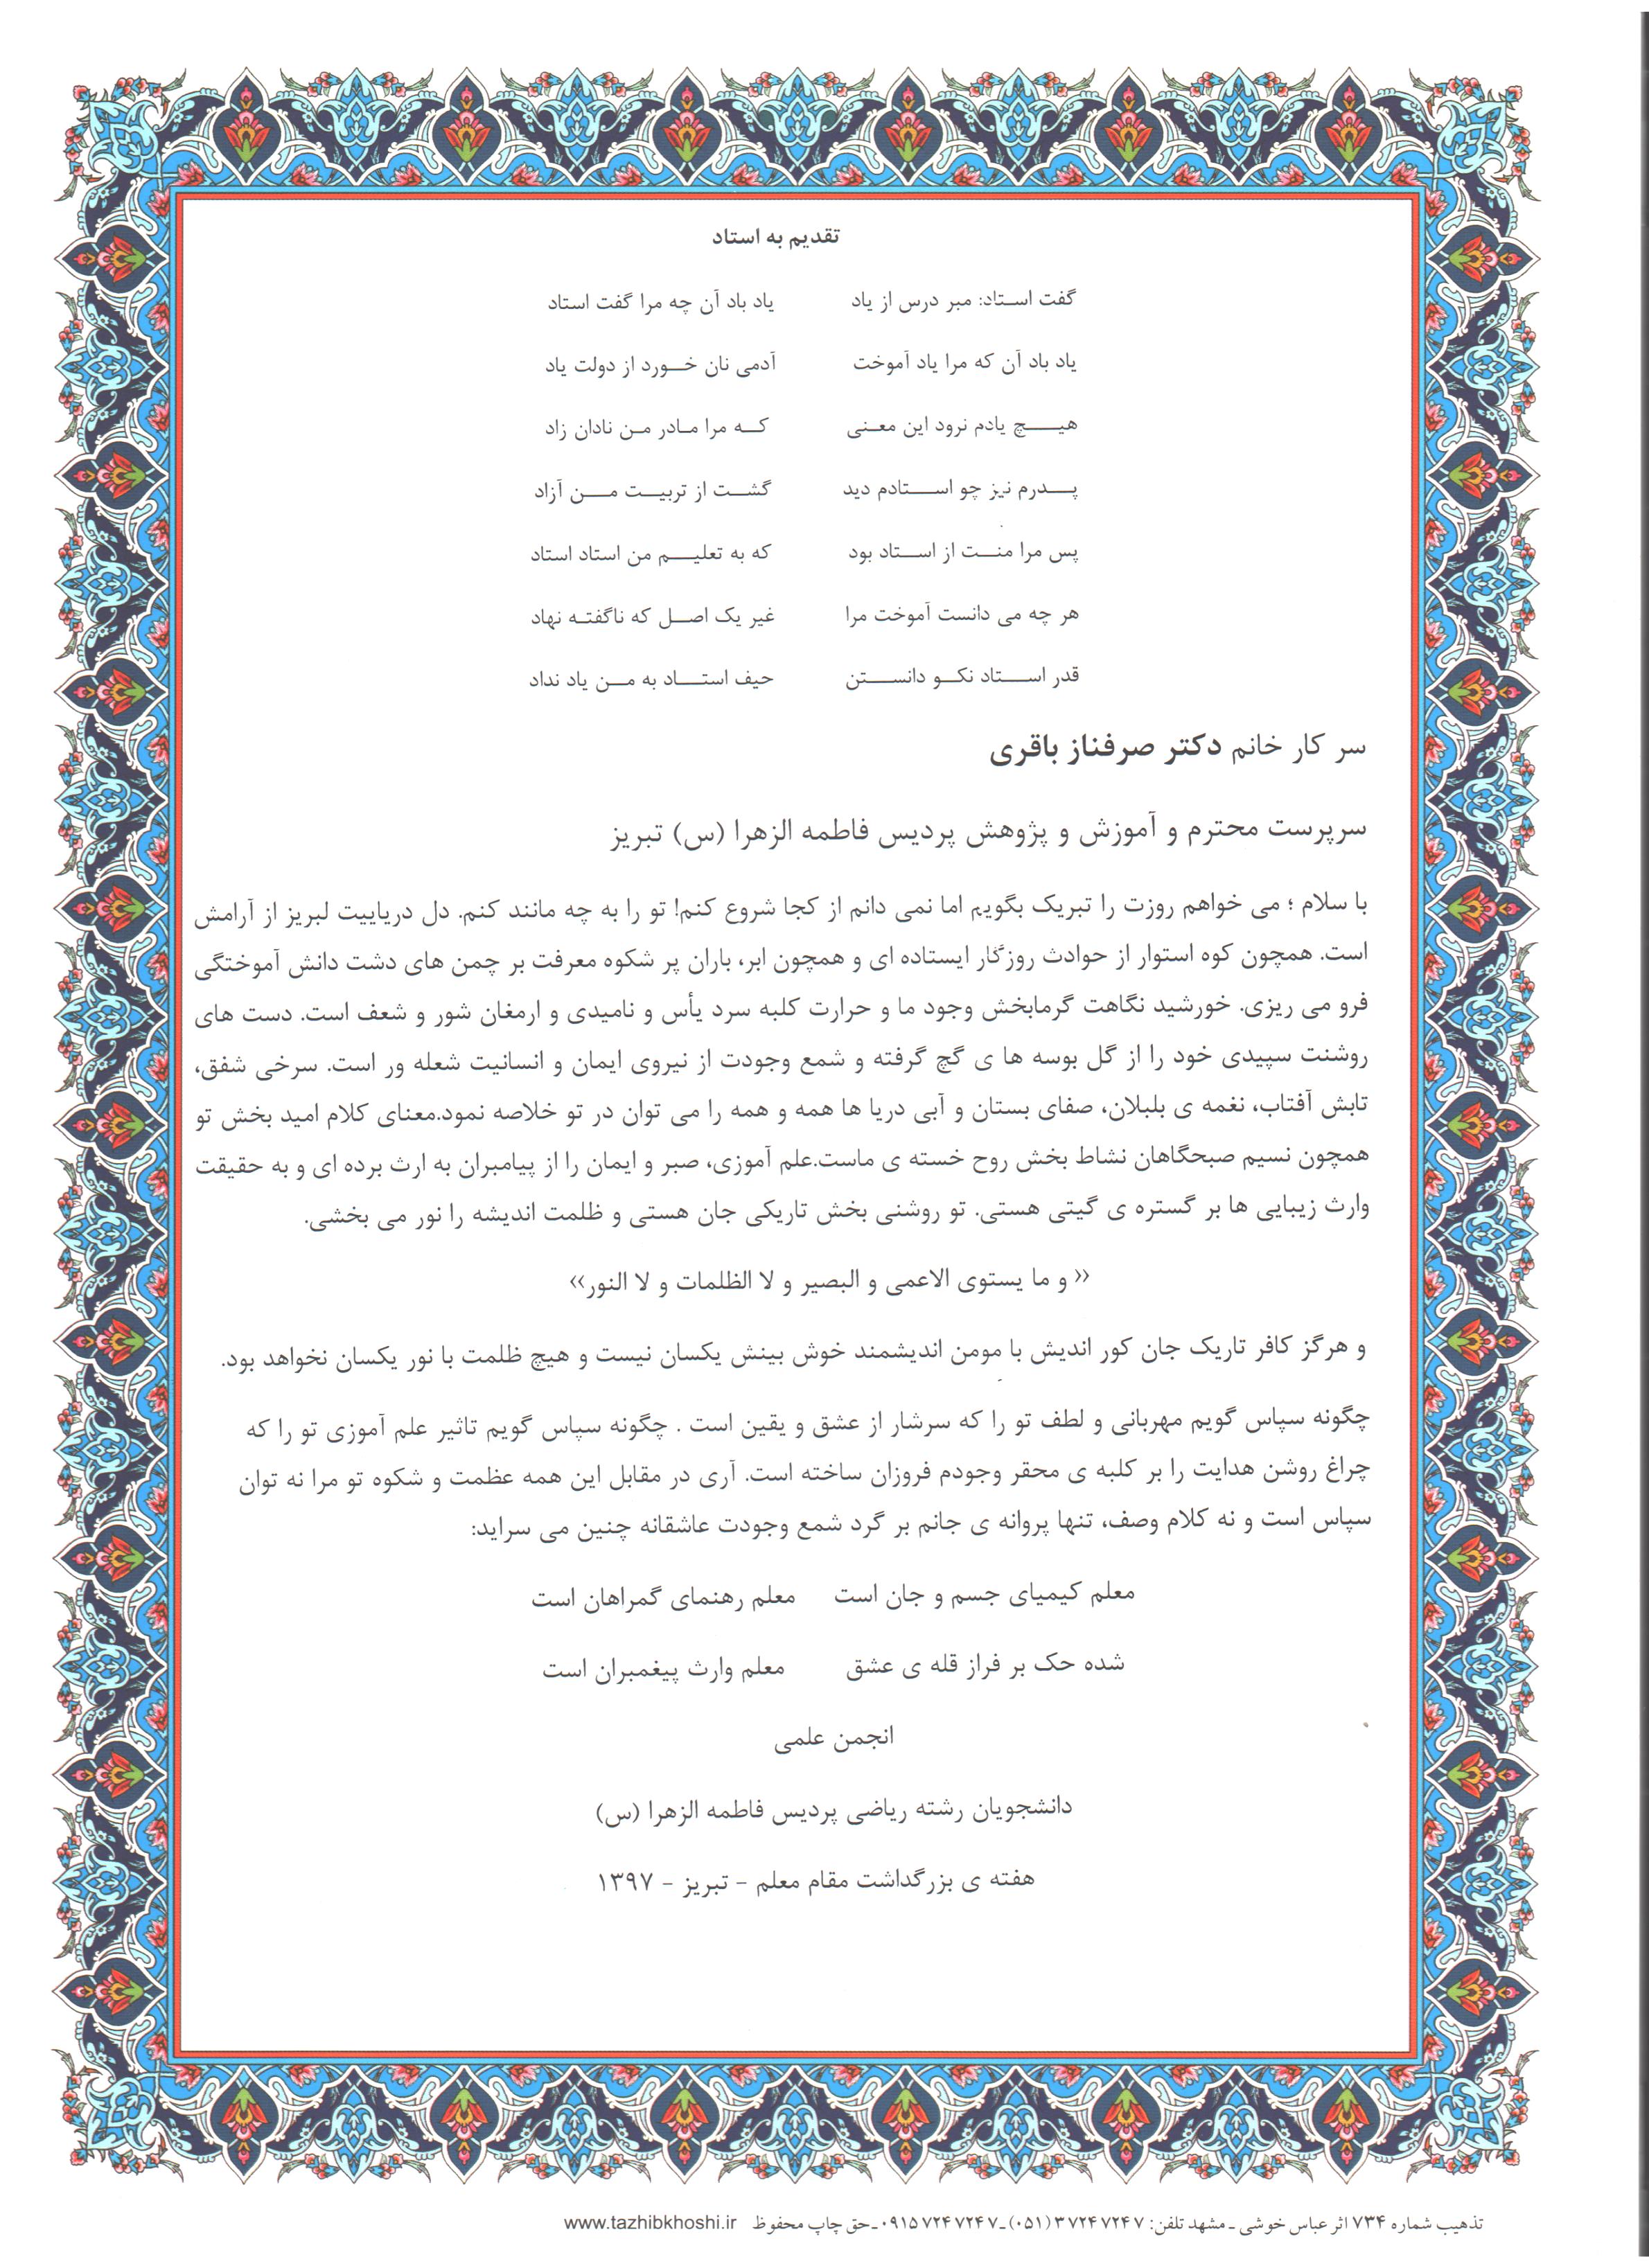 تقدیم به استاد
گفت استاد: مبر درس از یاد یاد باد آن چه مرا گفت استاد
یاد باد آن که مرا یاد آموخت آدمی نان خورد از دولت یاد
هیچ یادم نرود این معنی که مرا مادر من نادان زاد
پدرم نیز چو استادم دید گشت از تربیت من آزاد
پس مرا منت از استاد بود که به تعلیم من استاد استاد
هر چه می دانست آموخت مرا غیر یک اصل که ناگفته نهاد
قدر استاد نکو دانستن حیف استاد به من یاد نداد
سر کار خانم دکتر صرفناز باقری
سرپرست محترم و آموزش و پژوهش پردیس فاطمه الزهرا (س) تبریز
با سلام ؛ می خواهم روزت را تبریک بگویم اما نمی دانم از کجا شروع کنم! تو را به چه مانند کنم. دل دریاییت لبریز از آرامش
است. همچون کوه استوار از حوادث روزگار ایستاده ای و همچون ابر، باران پر شکوه معرفت بر چمن های دشت دانش آموختگی
فرو می ریزی. خورشید نگاهت گرمابخش وجود ما و حرارت کلبه سرد یأس و نامیدی و ارمغان شور و شعف است. دست های
روشنت سپیدی خود را از گل بوسه ها ی گچ گرفته و شمع وجودت از نیروی ایمان و انسانیت شعله ور است. سرخی شفق،
تابش آفتاب، نغمه ی بلبلان، صفای بستان و آبی دریا ها همه و همه را می توان در تو خلاصه نمود.معنای کلام امید بخش تو
همچون نسیم صبحگاهان نشاط بخش روح خسته ی ماست.علم آموزی، صبر و ایمان را از پیامبران به ارث برده ای و به حقیقت
وارث زیبایی ها بر گستره ی گیتی هستی. تو روشنی بخش تاریکی جان هستی و ظلمت اندیشه را نور می بخشی.
« و ما یستوی الاعمی و البصیر و لا الظلمات و لا النور»
و هرگز کافر تاریک جان کور اندیش با مومن اندیشمند خوش بینش یکسان نیست و هیچ ظلمت با نور یکسان نخواهد بود.
چگونه سپاس گویم مهربانی و لطف تو را که سرشار از عشق و یقین است . چگونه سپاس گویم تاثیر علم آموزی تو را که
چراغ روشن هدایت را بر کلبه ی محقر وجودم فروزان ساخته است. آری در مقابل این همه عظمت و شکوه تو مرا نه توان
سپاس است و نه کلام وصف، تنها پروانه ی جانم بر گرد شمع وجودت عاشقانه چنین می سراید:
معلم کیمیای جسم و جان است معلم رهنمای گمراهان است
شده حک بر فراز قله ی عشق معلم وارث پیغمبران است
انجمن علمی
دانشجویان رشته ریاضی پردیس فاطمه الزهرا (س)
هفته ی بزرگداشت مقام معلم - تبریز - ۱۳۹۷
تذهیب شماره ۷۳۴ اثر عباس خوشی ـ مشهد تلفن: ۳۷۲۴۷۲۴۷ (۰۵۱) ـ ۰۹۱۵۷۲۴۷۲۴۷ـ حق چاپ محفوظ www.tazhibkhoshi.ir